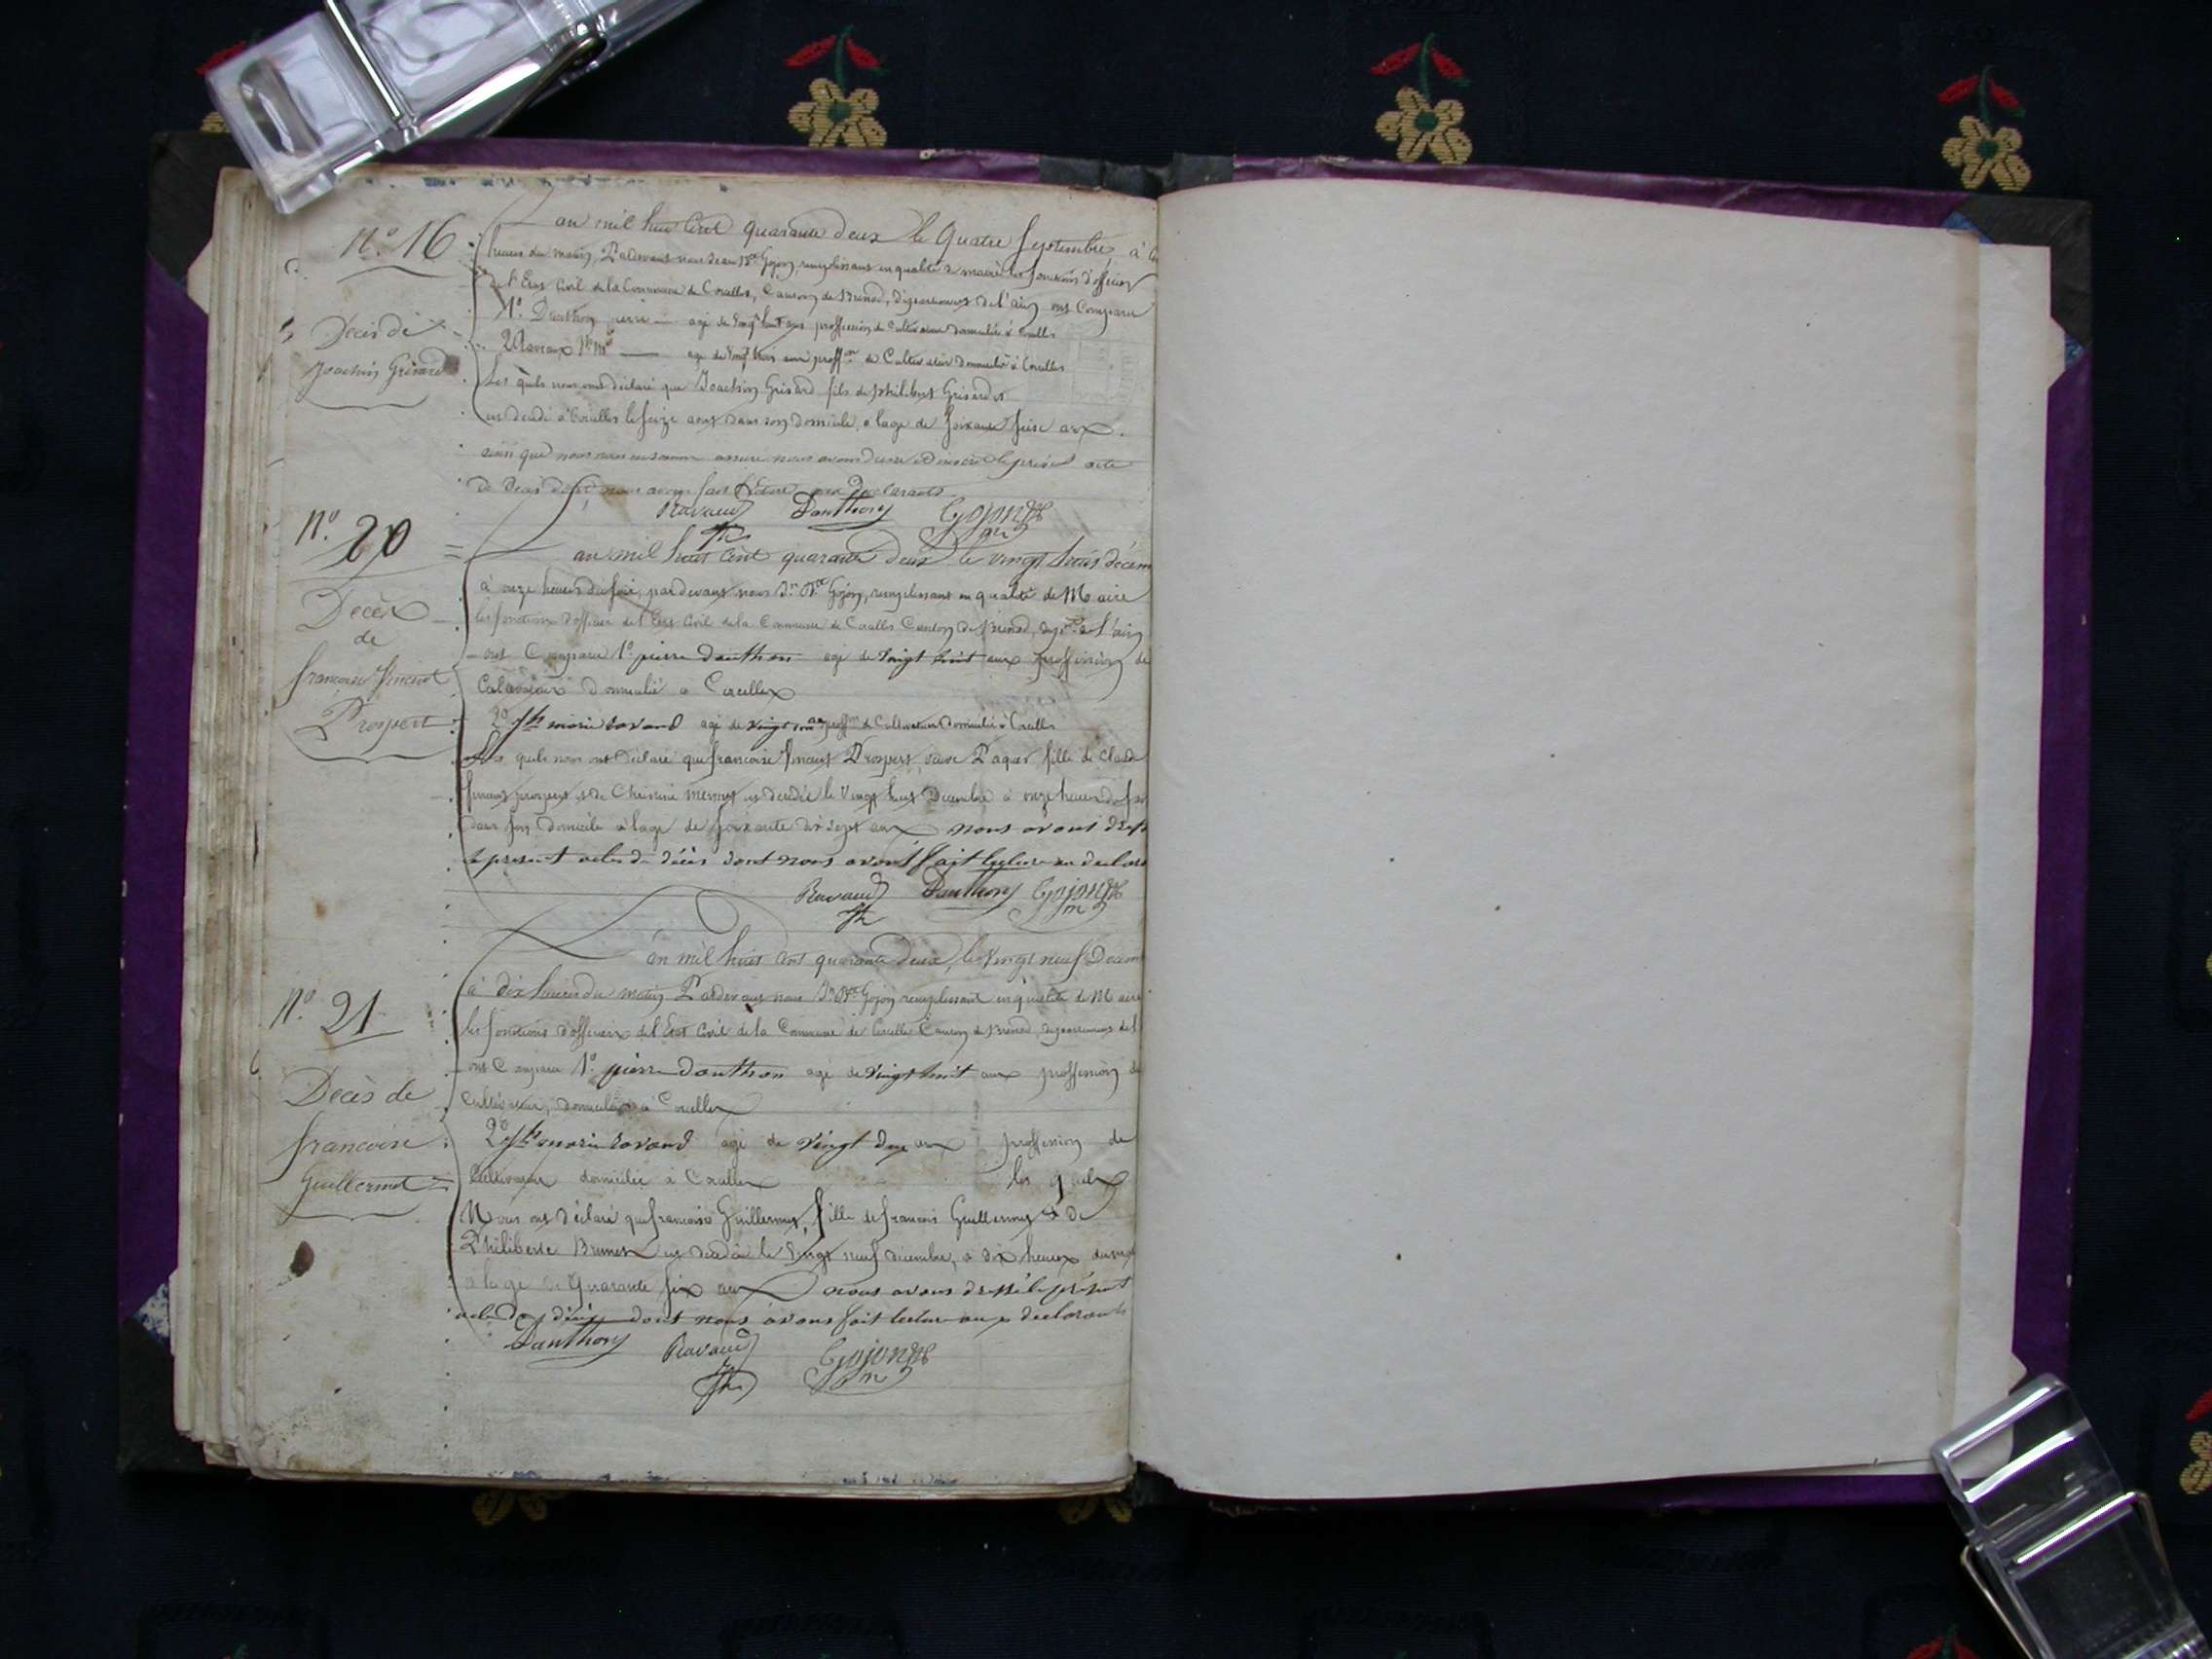 n.º 16
Décès de
Joachim Grisard
L'an mil huit Cent quarante deux le Quatre Septembre, à
heures du matin, Pardevant nous Jean Bte Gojon, remplissant en qualité de maire les fonctions d'officier
de l'Etat Civil de la Commune de Corcelles, Canton de Brénod, département de l'ain, ont Comparu
1º. Danthon pierre — agé de vingt huit ans profession de Cultivateur domicilié à Corcelles
2º Ravaux — agé de vingt trois ans proffon de Cultivateur domicilié à Corcelles
Les quels nous ont déclaré que Joachim Grisard fils de philibert Grisard
est décédé à Corcelles le seize aout dans son domicile, a lage de soixante seise ans.
ainsi que nous nous en sommes assuré nous avons dressé le présent acte
de décès nous avons fait lecture aux déclarants
Ravaud Danthon Gojon
n.º 20
Décès
de
francoise Vincent
Prospert
L'an mil huit Cent quarante deux le vingt huit décem
à onze heures du soir, pardevant nous Jn Bte Gojon, remplissant en qualité de Maire
les fonctions d'officier de l'Etat Civil de la Commune de Corcelles Canton de Brénod, dept de l'ain
ont Comparu 1º pierre danthon agé de vingt huit ans proffession de
Cultivateur domicilié a Corcelles
2º jh marie ravaud agé de vingt proffon de Cultivateur domicilié à Corcelles
Les quels nous ont déclaré que francoise Vincent Prospert, veuve Paquet fille de Claude
Vincent prospert et de Christine mermet est décédée le Vingt huit Décembre à onze heures du soir
dans son domicile a lage de soixante dix sept ans nous avons dressé
le present acte de décès dont nous avons fait lecture au declara
Ravaud Danthon Gojon
n.º 21
Décès de
francoise
Guillermet
L'an mil huit cent quarante deux, le Vingt neuf Décem
à dix heures du matin Pardevant nous Jn Bte Gojon remplissant en qualité de Maire
les fonctions d'officier de l'Etat Civil de la Commune de Corcelles Canton de Brénod, département de l
ont Comparu 1º. pierre danthon agé de vingt huit ans proffession de
Cultivateur, domicilié à Corcelles
2º jh marie ravaud agé de vingt ans proffession de
Cultivateur domicilié à Corcelles les quels
Nous ont déclaré que francoise Guillermet, fille de francois Guillermet et de
Philiberte Brunet est décédée le Vingt neuf décembre, a dix heures du mat
a lage de Quarante six ans nous avons dressé le présent
acte de décès dont nous avons fait lecture aux declarants
Danthon Ravaud Gojon